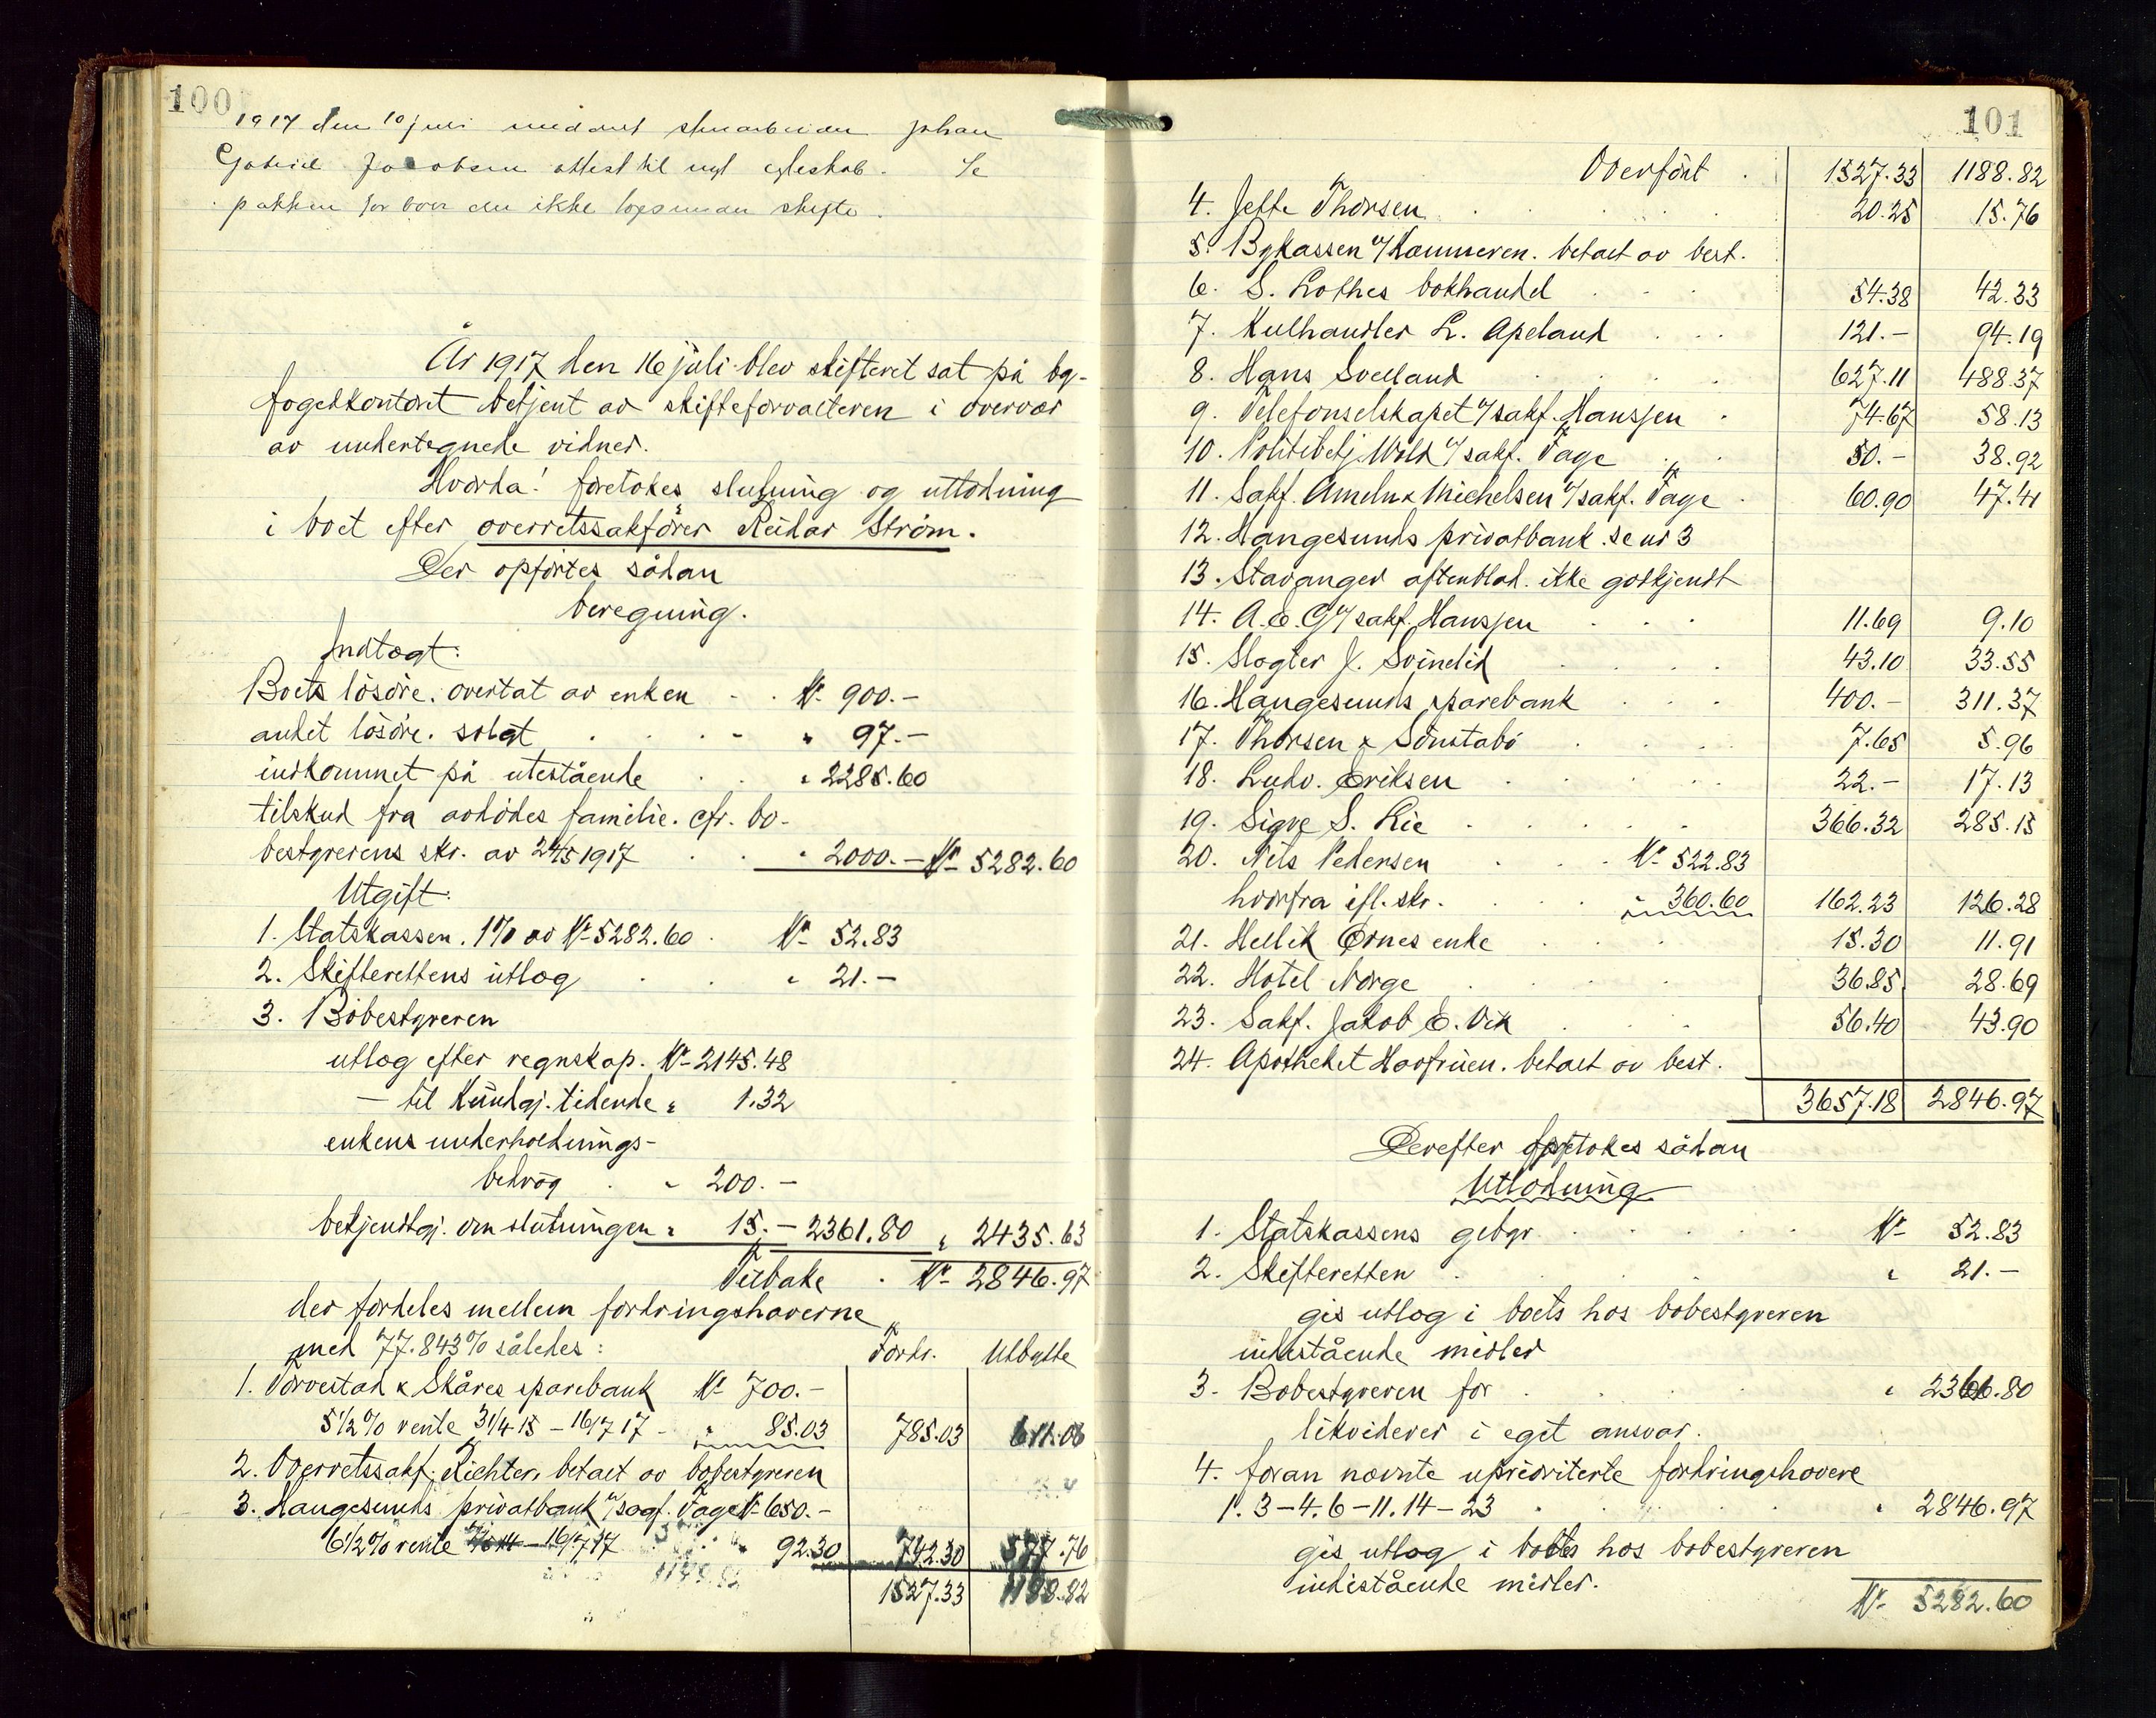 100
1917 den 10 juli meddelt stenarbeider Johan
Gabriel Jacobsen attest til nyt egteskab. Se
pakken for boer der ikke tages under skifte.
År 1917 den 16 juli blev skifteret sat på by-
fogedkontoret betjent av skifteforvalteren i overvær
av undertegnede vidner.
Hvorda! foretokes slutning og utlodning
i boet efter overretssakfører Reidar Ström.
Der opførtes sådan
beregning.
Indtægt:
Boets løsøre. overtat av enken - . Kr. 900.-
andet løsøre. solgt . . . - " 97.-
indkommet på utestående . . " 2285.60
tilskud fra avdødes familie. cfr. bo-
bestyrerens skr. av 24/5 1917 . . " 2000.- Kr 5282.60
Utgift:
1. Statskassen. 1% av Kr 5282.60 . Kr 52.83
2. Skifterettens utlæg . . " 21.-
3. Bobestyreren
utlæg efter regnskap. Kr 2145.48
— til Kundgj. tidende " 1.32
enkens underholdnings-
bidrag . " 200.-
bekjendtgj. om slutningen " 15.- 2361.80 " 2435.63
Tilbake . Kr 2846.97
der fordeles mellem fordringshaverne
med 77.843% således: Fordr. Utbytte
1. Torvestad & Skåres sparebank Kr 700.-
5 1/2% rente 3/4 15 - 16/7 17 - " 85.03 785.03 611.06
2. Overretssakf. Richter, betalt av bobestyreren
3. Haugesunds privatbank v/ sagf. Tage Kr 650.-
6 1/2% rente - 16/7 17 " 92.30 742.30 577.76
1527.33 1188.82
101
Overført . 1527.33 1188.82
4. Jette Thorsen . . . . 20.25 15.76
5. Bykassen v/ Kæmneren. betalt av best.
6. S. Lothes bokhandel . . . 54.38 42.33
7. Kulhandler L. Apeland . . . 121.- 94.19
8. Hans Svelland . . . . 627.11 488.37
9. Telefonselskapet v/ sakf. Hansjen . 74.67 58.13
10. Politibetj. Wold v/ sakf. Tage . . 50.- 38.92
11. Sakf. Ameln & Michelsen v/ sakf. Tage . 60.90 47.41
12. Haugesunds privatbank. se nr 3
13. Stavanger aftenblad. ikke godkjendt
14. A.E.G. v/ sakf. Hansjen . . . 11.69 9.10
15. Slagter J. Svindid . . . . 43.10 33.55
16. Haugesunds sparebank . . . 400.- 311.37
17. Thorsen & Sønstabø . . . . 7.65 5.96
18. Ludv. Eriksen . . . . 22.- 17.13
19. Sigve S. Lie . . . . . 366.32 285.15
20. Nils Pedersen . . . Kr 522.83
hvorfra ifl. skr. . . . " 360.60 162.23 126.28
21. Hellik Ørnes enke . . . 15.30 11.91
22. Hotel Norge . . . . 36.85 28.69
23. Sakf. Jakob E. Vik . . . 56.40 43.90
24. Apotheket Havfruen. betalt av best.
3657.18 2846.97
Derefter foretokes sådan
Utlodning
1. Statskassens gebyr . . . . Kr 52.83
2. Skifteretten . . . " 21.-
gis utlæg i boets hos bobestyreren
indestående midler
3. Bobestyreren for . . . . " 2361.80
likviderer i eget ansvar.
4. foran nævnte uprioriterte fordringshavere
1. 3-4. 6-11. 14-23 . . . " 2846.97
gis utlæg i boets hos bobestyreren
indestående midler.
Kr 5282.60